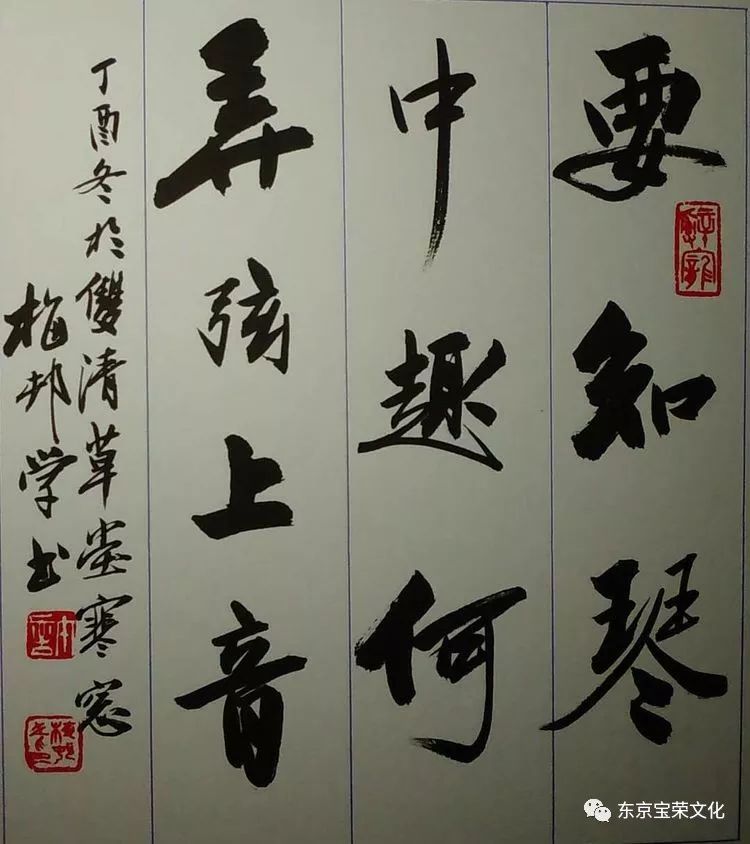 要知琴
中趣何
弄弦上音
丁酉冬於雙清草堂寒窓
梅邦学书
东京宝荣文化